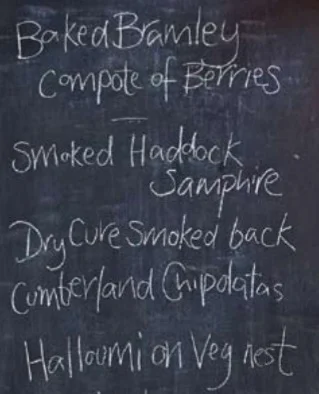 Baked Bramley
Compote of Berries
Smoked Haddock
Samphire
Dry Cure Smoked back
Cumberland Chipolatas
Halloumi on Veg nest